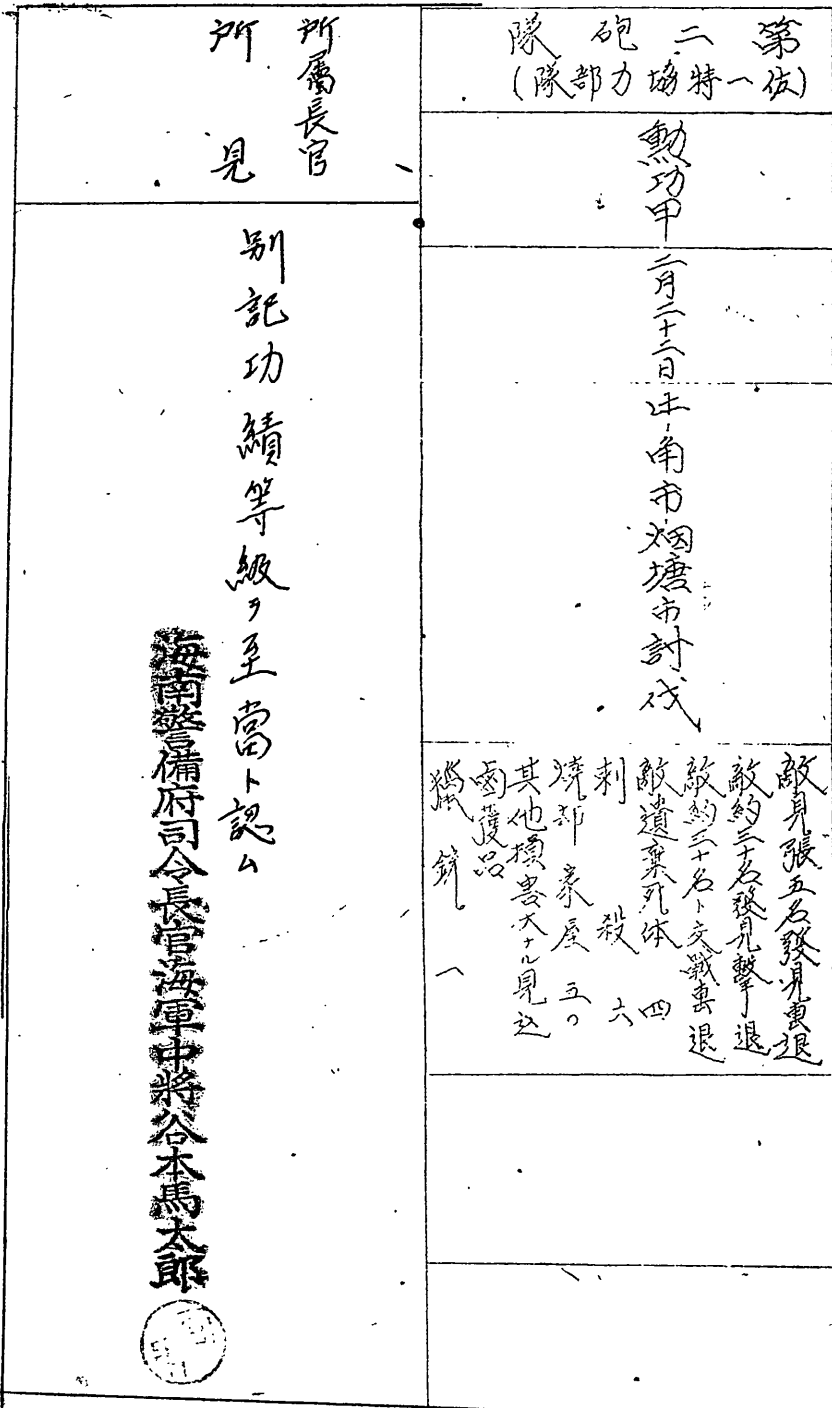 第二砲隊
(佐一特協力部隊)
勲功甲
二月二十二日
南市烟塘市討伐
敵見張五名發見撃退
敵約三十名發見撃退
敵約三十名ト交戰撃退
敵遺棄死体 四
刺殺 六
燒却家屋 五〇
其他損害大ナル見込
鹵獲品
猟銃 一
所屬長官
所見
別記功績等級ヲ至當ト認ム
海南警備府司令長官海軍中將谷本馬太郎